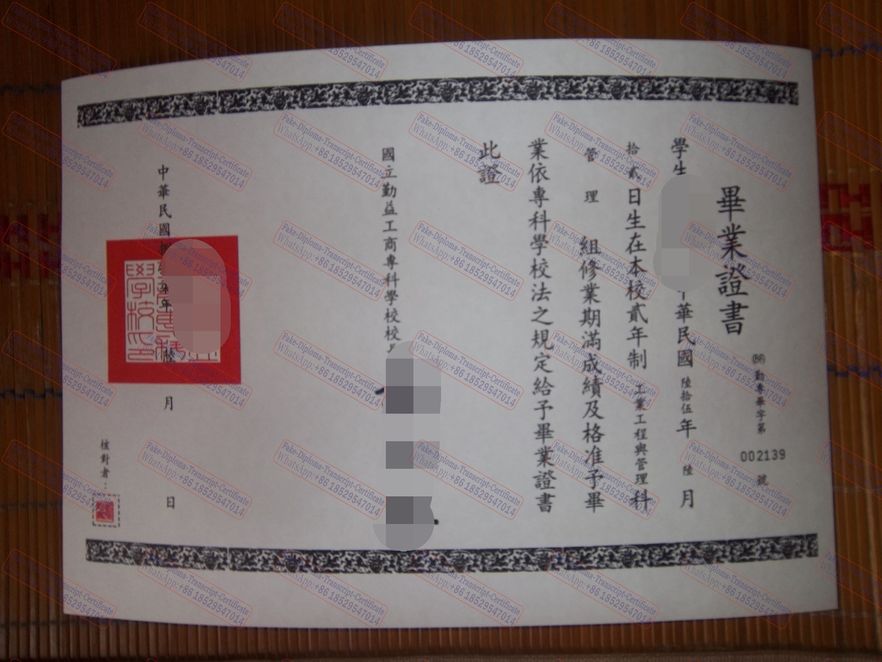 畢業證書
(86)勤專畢字第
002139
號
學生
華民國陸拾伍年陸月
拾貳日生在本校貳年制工業工程與管理科
管理組修業期滿成績及格准予畢
業依專科學校法之規定給予畢業證書
此證
國立勤益工商專科學校校
中華民國
年
月
日
核對者：
Fake-Diploma-Transcript-Certificate
WhatsApp:+86 18529547014